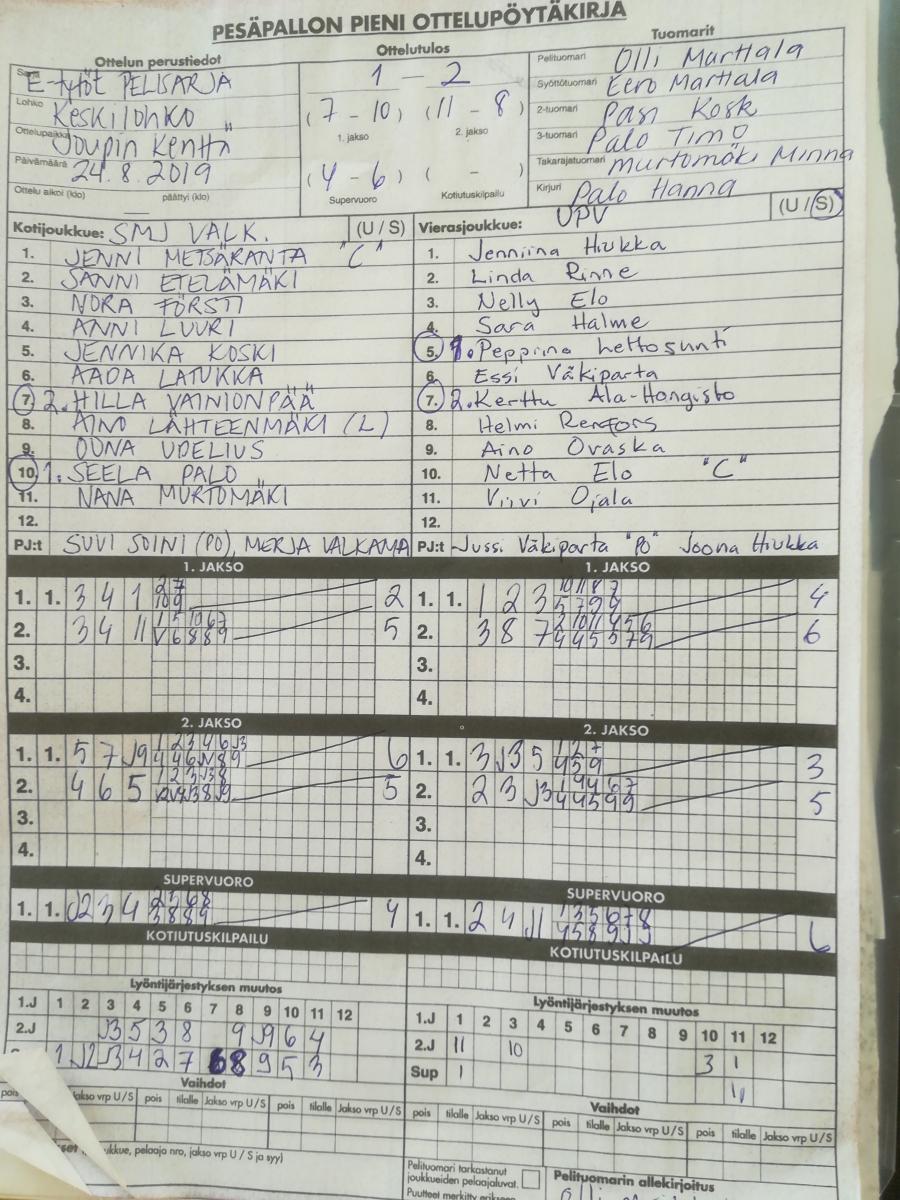 PESÄPALLON PIENI OTTELUPÖYTÄKIRJA
Ottelun perustiedot
Sarja E-tytöt PELISARJA
Lohko Keskilohko
Ottelupaikka Joupin Kenttä
Päivämäärä 24.8.2019
Ottelu alkoi (klo) päättyi (klo)
Ottelutulos
1 - 2
(7 - 10) (11 - 8)
1. jakso 2. jakso
(4 - 6) ( - )
Supervuoro Kotiutuskilpailu
Tuomarit
Pelituomari Olli Marttala
Syöttötuomari Eero Marttala
2-tuomari Pasi Kosk
3-tuomari Palo Timo
Takarajatuomari Murtomäki Minna
Kirjuri Palo Hanna
Kotijoukkue: SMJ VALK. (U / S)
1. JENNI METSÄRANTA "C"
2. SANNI ETELÄMÄKI
3. NORA FÖRSTI
4. ANNI LUURI
5. JENNIKA KOSKI
6. AADA LATUKKA
7. 2. HILLA VAINIONPÄÄ
8. AINO LÄHTEENMÄKI (L)
9. OONA UDELIUS
10. 1. SEELA PALO
11. NANA MURTOMÄKI
12.
PJ:t SUVI SOINI (PO), MERJA VALKAMA
Vierasjoukkue: UPV (U / S)
1. Jenniina Hiukka
2. Linda Rinne
3. Nelly Elo
4. Sara Halme
5. 1. Peppiina Lettosunti
6. Essi Väkiparta
7. 2. Kerttu Ala-Hongisto
8. Helmi Renfors
9. Aino Ovaska
10. Netta Elo "C"
11. Viivi Ojala
12.
PJ:t Jussi Väkiparta "PO" Joona Hiukka
1. JAKSO
1. 1. 3 4 1 2
2. 3 4 11 5
3.
4.
1. JAKSO
1. 1. 1 2 3 4
2. 3 8 7 6
3.
4.
2. JAKSO
1. 1. 5 7 J9 6
2. 4 6 5 5
3.
4.
2. JAKSO
1. 1. 3 J3 5 3
2. 2 3 J3 5
3.
4.
SUPERVUORO
1. 1. 2 3 4 4
SUPERVUORO
1. 1. 2 4 J1 6
KOTIUTUSKILPAILU
KOTIUTUSKILPAILU
Lyöntijärjestyksen muutos
1.J 1 2 3 4 5 6 7 8 9 10 11 12
2.J J3 5 3 8 9 J9 6 4
1 J2 J3 4 2 7 8 9 5 3
Lyöntijärjestyksen muutos
1.J 1 2 3 4 5 6 7 8 9 10 11 12
2.J 11 10 3 1
Sup 1 11
Vaihdot
pois Jakso vrp U/S pois tilalle Jakso vrp U/S pois tilalle Jakso vrp U/S
Vaihdot
pois tilalle Jakso vrp U/S pois tilalle Jakso vrp U/S pois tilalle Jakso vrp U/S
joukkue, pelaaja nro, jakso vrp U / S ja syy)
Pelituomari tarkastanut
joukkueiden pelaajaluvat.
Puutteet merkitty
Pelituomarin allekirjoitus